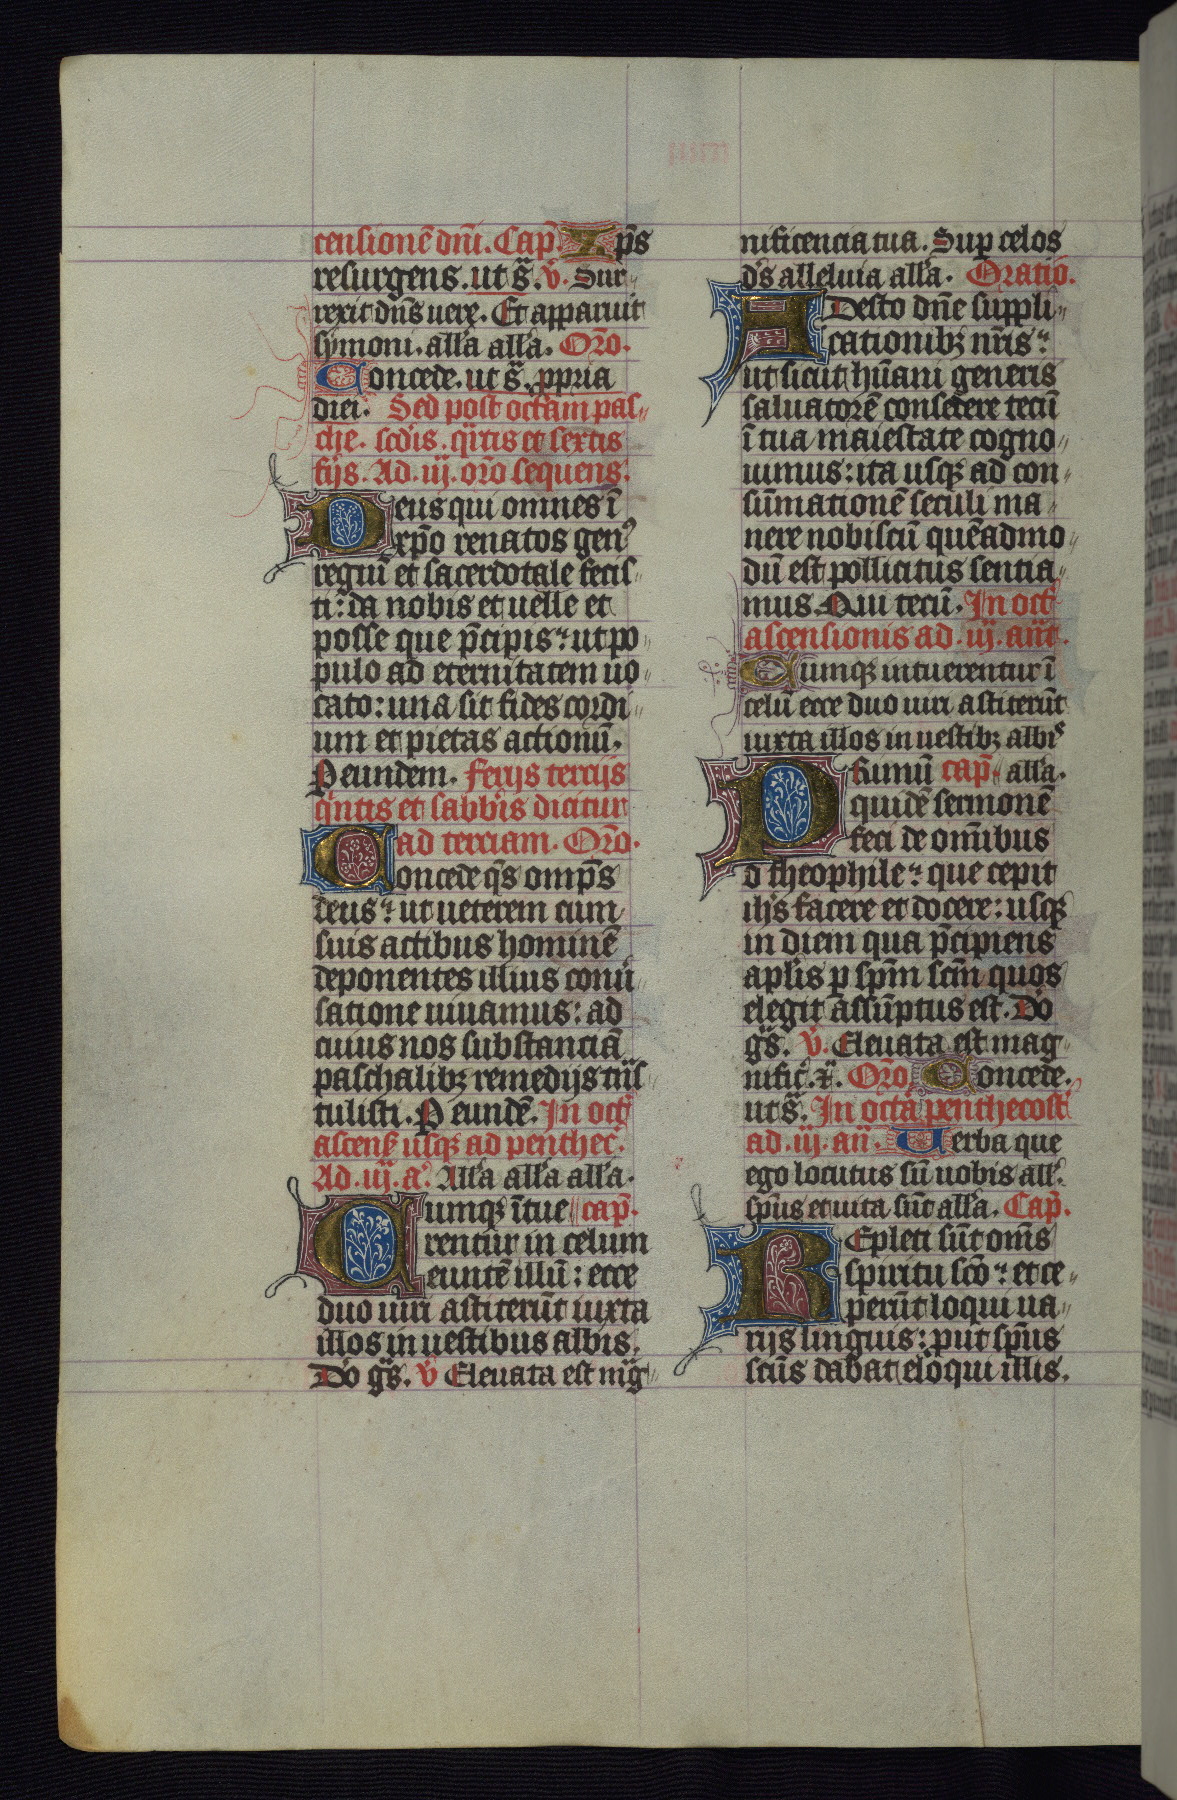 censionē dn̄i. Cap̄. Xp̄s
resurgens. ut s͛. v̄. Sur
rexit dn̄s uere. Et apparuit
symoni. all'a all'a. Or̄o.
Concede. ut s͛. ꝓpria
diei. Sed post octām pas„
che. scd'is. qͥrtis et sextis
fijs. Ad. iij. or̄o sequens.
Deus qui omnes ī
xp̄o renatos genꝰ
regiū et sacerdotale fecis„
ti: da nobis et uelle et
posse que p̄cipis: ut po„
pulo ad eternitatem uo„
cato: una sit fides cordi„
um et pietas actionū.
P eundem. Ferijs tercijs
qͥntis et sabb'is dicitur
ad terciam. Or̄o.
Concede qs̄ omp̄s
deus: ut ueterem cum
suis actibus hominē
deponentes illius conu͛
satione uiuamus: ad
cuius nos substanciā
paschalibꝫ remedijs trās
tulisti. P eundē. In oct͛
ascens̄ usqꝫ ad penthec̄.
Ad. iij. a͛. All'a all'a all'a.
Cumqꝫ ītue„ cap̄.
rentur in celum
euntē illū: ecce
duo uiri astiterūt iuxta
illos in uestibus albis.
Do g͛s. v̄ Eleuata est mͣg„
nificencia tua. Sup celos
d's alleluia all'a. Oratiō.
Adesto dn̄e suppli„
cationibꝫ nr̄is:
ut sicut hūani generis
saluatorē consedere tecū
ī tua maiestate cogno„
uimus: ita usqꝫ ad con„
sūmationē seculi ma„
nere nobiscū quēadmo„
dū est pollicitus sentia„
mus. Qui tecū. In oct͛
ascensionis ad. iij. ant̄.
Cumqꝫ intuerentur ī
celū ecce duo uiri astiterūt
iuxta illos in uestibꝫ albis
Primū cap̄. all'a.
quidē sermonē
feci de om̄ibus
o theophile: que cepit
ih̄s facere et docere: usqꝫ
in diem qua p̄cipiens
apl'is p sp̄m sc̄m quos
elegit assūptus est. Do
g͛s. v̄. Eleuata est mag„
nific͛. ꝝ. Or̄o. Concede.
ut s͛. In octā penthecost͛
ad. iij. an̄. Uerba que
ego locutus sū uobis all'.
sp̄us et uita sūt all'a. Cap̄.
Repleti sūt om̄s
spiritu sc̄o: et ce„
perūt loqui ua„
rijs linguis: ꝓut sp̄us
sc̄us dabat eloqui illis.